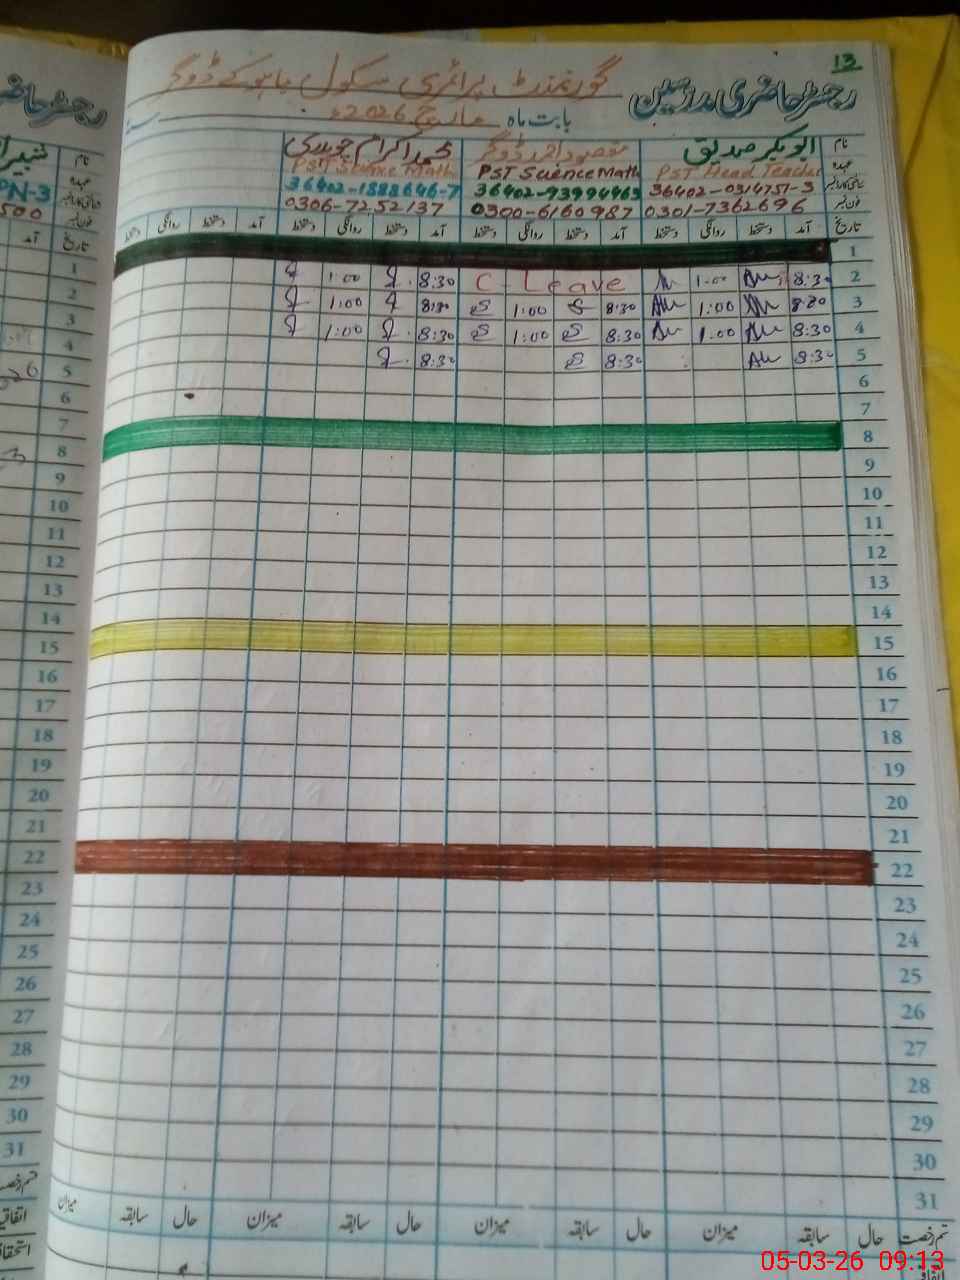 13
رجسٹر حاضری مدرسین
گورنمنٹ پرائمری سکول ڈوگر
بابت ماہ مارچ 2026ء
نام ابوبکر صدیق مقصود احمد ڈوگر محمد اکرم چوہدری
عہدہ PST Head Teacher PST Science Math PST Science Math
شناختی کارڈ نمبر 36402-0314751-3 36402-93994463 36402-1888646-7
فون نمبر 0301-7362696 0300-6160987 0306-7252137
تاریخ آمد دستخط روانگی دستخط آمد دستخط روانگی دستخط آمد دستخط روانگی دستخط آمد دستخط روانگی دستخط
1
2 8:30 1:00 C-Leave 8:30 1:00
3 8:30 1:00 8:30 1:00 8:30 1:00
4 8:30 1:00 8:30 1:00 8:30 1:00
5 8:30 8:30 8:30
6
7
8
9
10
11
12
13
14
15
16
17
18
19
20
21
22
23
24
25
26
27
28
29
30
31
قسم رخصت حال سابقہ میزان حال سابقہ میزان حال سابقہ میزان حال سابقہ میزان
رجسٹر حاضری
نام
عہدہ
PN-3
فون نمبر
500
تاریخ
آمد
1
2
3
4
5
6
7
8
9
10
11
12
13
14
15
16
17
18
19
20
21
22
23
24
25
26
27
28
29
30
31
قسم رخصت
اتفاقیہ
05-03-26 09:13